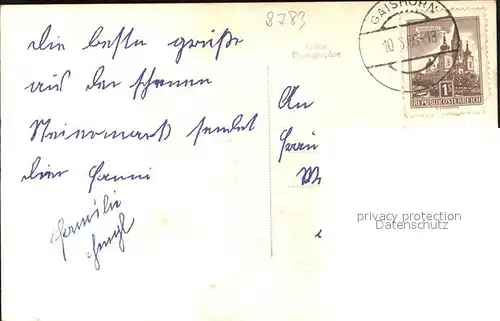 8783
die beste grüße
aus der schenen
Steiermark sendet
dier Fanni
Familie
Echte
Photographie
GAISHORN
10.6.
1S
REPUBLIK ÖSTERREICH
An
Frau
privacy protection
Datenschutz